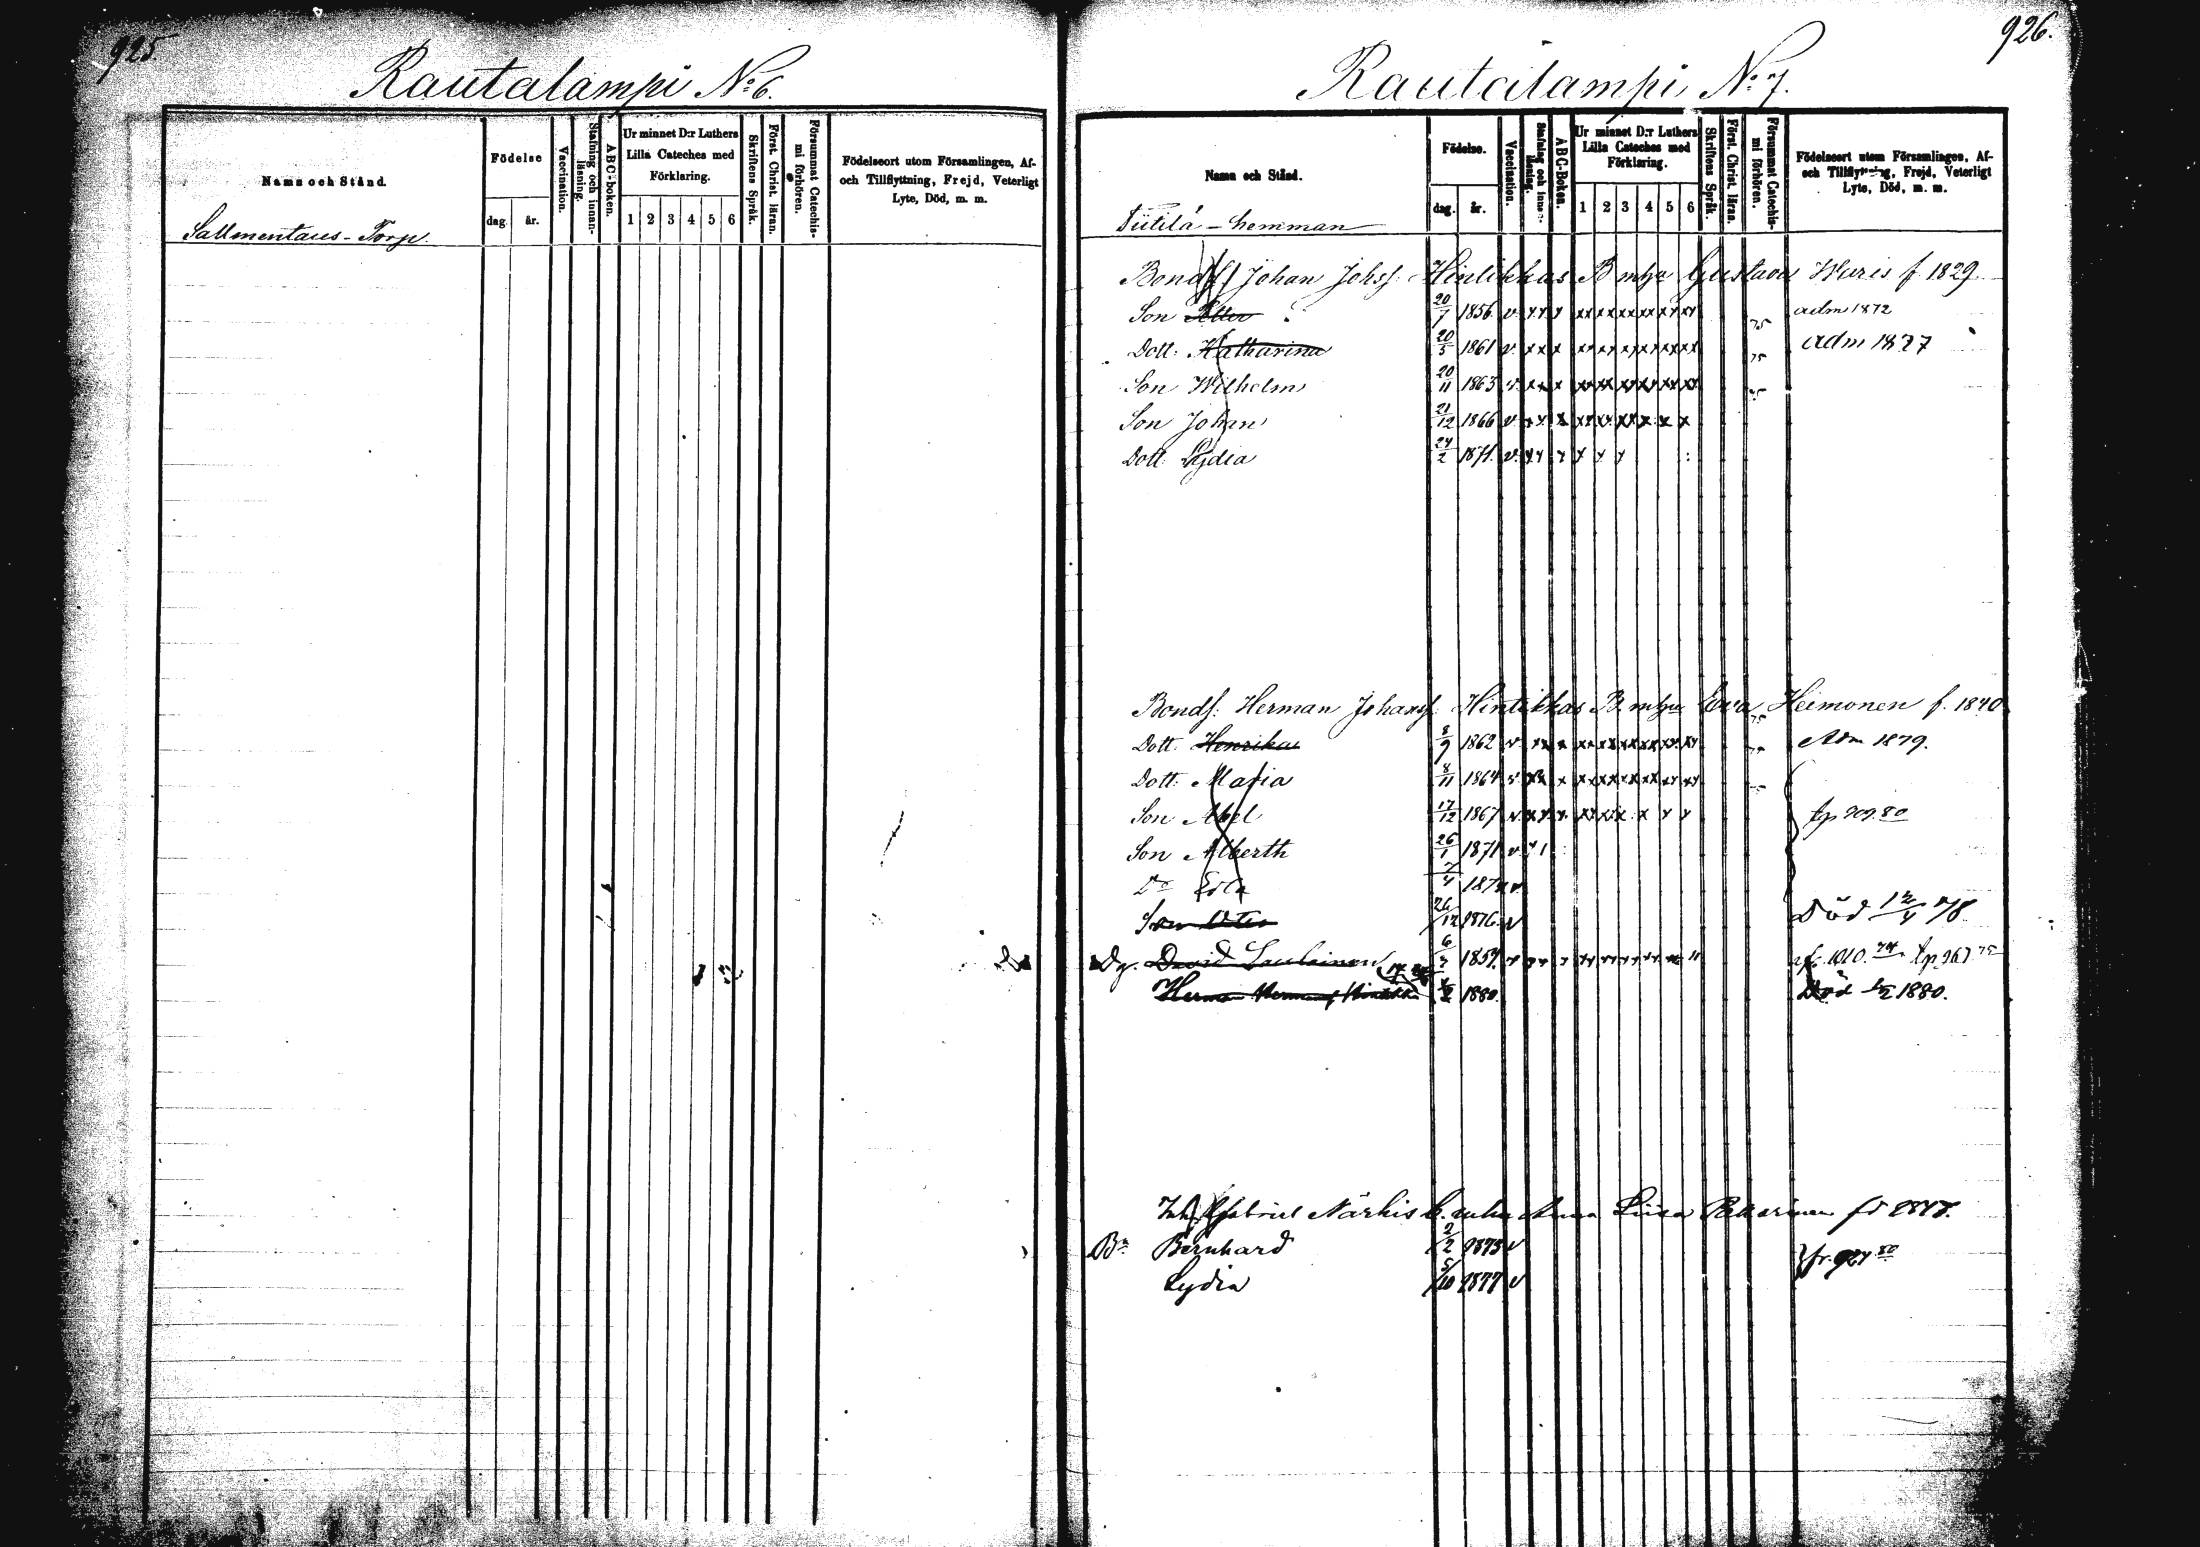 925.
Rautalampi No 6.
Namn och Stånd.
Födelse
dag.
år.
Vaccination.
Stafning och innan-
läsning.
ABC-boken.
Ur minnet D:r Luthers
Lilla Cateches med
Förklaring.
1 2 3 4 5 6
Skriftens Språk.
Först. Christ. läran.
Försummat Catechis-
mi förhören.
Födelseort utom Församlingen, Af-
och Tillflyttning, Frejd, Veterligt
Lyte, Död, m. m.
Sallmentaus-Torp.
926.
Rautalampi No 7.
Namn och Stånd.
Födelse.
dag.
år.
Vaccination.
Stafning och innan-
läsning.
ABC-Boken.
Ur minnet D:r Luthers
Lilla Cateches med
Förklaring.
1 2 3 4 5 6
Skriftens Språk.
Först. Christ. läran.
Försummat Catechis-
mi förhören.
Födelseort utom Församlingen, Af-
och Tillflyttning, Frejd, Veterligt
Lyte, Död, m. m.
Tiitilä - hemman
Bondes Johan Johss: Hintikkas B mhu Gustava Waris f. 1829.
Son Petter 20/7 1856 v. 75 adm 1872
Dott: Katharina 20/5 1861 v. 75 adm 1877
Son Wilhelm 20/11 1863 v.
Son Johan 21/12 1866 v
Dott: Lydia 24/2 1871. v.
Bonds: Herman Johanss: Hintikkas B. mhu Eva Heimonen f. 1840
Dott: Henrika 8/9 1862 v. Adm 1879.
Dott: Maria 8/11 1864 v
Son Abel 17/12 1867 v. tp 909.80
Son Alberth 26/1 1871 v
Do 7/4 v
Son Otto 26/12 1876. v Död /4 78
Dg. David 6/ 1859. fr. 1010.74 tp.267 75
Herman Hintikka 1880. Död 1880.
Gabriel Närhis mhu Anna Liisa Pekarinen
Bn Bernhard 2/2 1873 v fr. 924 80
Lydia 5/10 1877 v